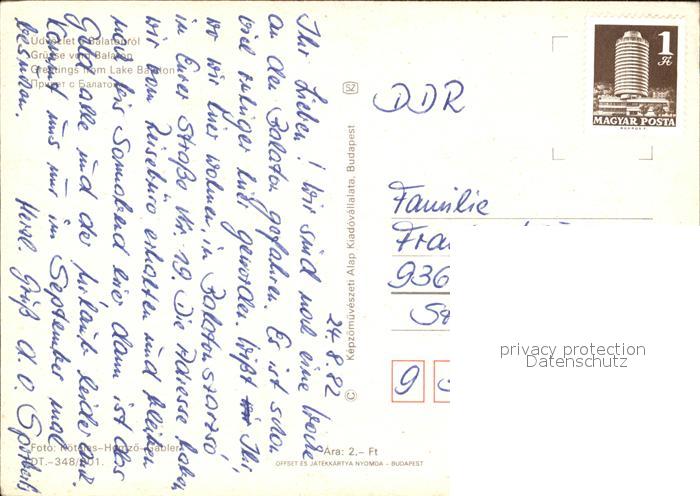 Üdvözlet a Balatonról
Grüsse vom Balaton
Greetings from Lake Balaton
Привет с Балатона
24.8.82
Ihr Lieben! Wir sind mal eine Woche
an den Balaton gefahren. Es ist schon
viel ruhiger hier geworden. Wißt Ihr,
wo wir hier wohnen, in Balatonszárszó
in Eurer Straße Nr. 19. Die Adresse haben
wir vom Reisebüro erhalten und bleiben
noch bis Sonnabend hier dann ist das
Geld alle und der Urlaub leider auch.
Kommt uns nur im September mal
besuchen. Herzl. Grüß d. O.
Foto: Köteles–Hemző–Gábler
DT.–348/801.
SZ
© Képzőművészeti Alap Kiadóvállalata, Budapest
Ára: 2,– Ft
OFFSET ÉS JÁTÉKKÁRTYA NYOMDA – BUDAPEST
1 Ft
MAGYAR POSTA
DDR
Familie
Fra
936
9
privacy protection
Datenschutz